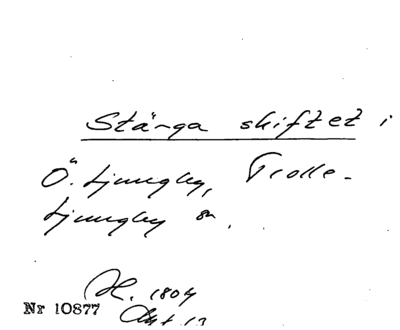 Stärga skiftet i
Ö. Ljungby, Trolle-
Ljungby sn.
H. 1804
Nr 10877
Akt 13